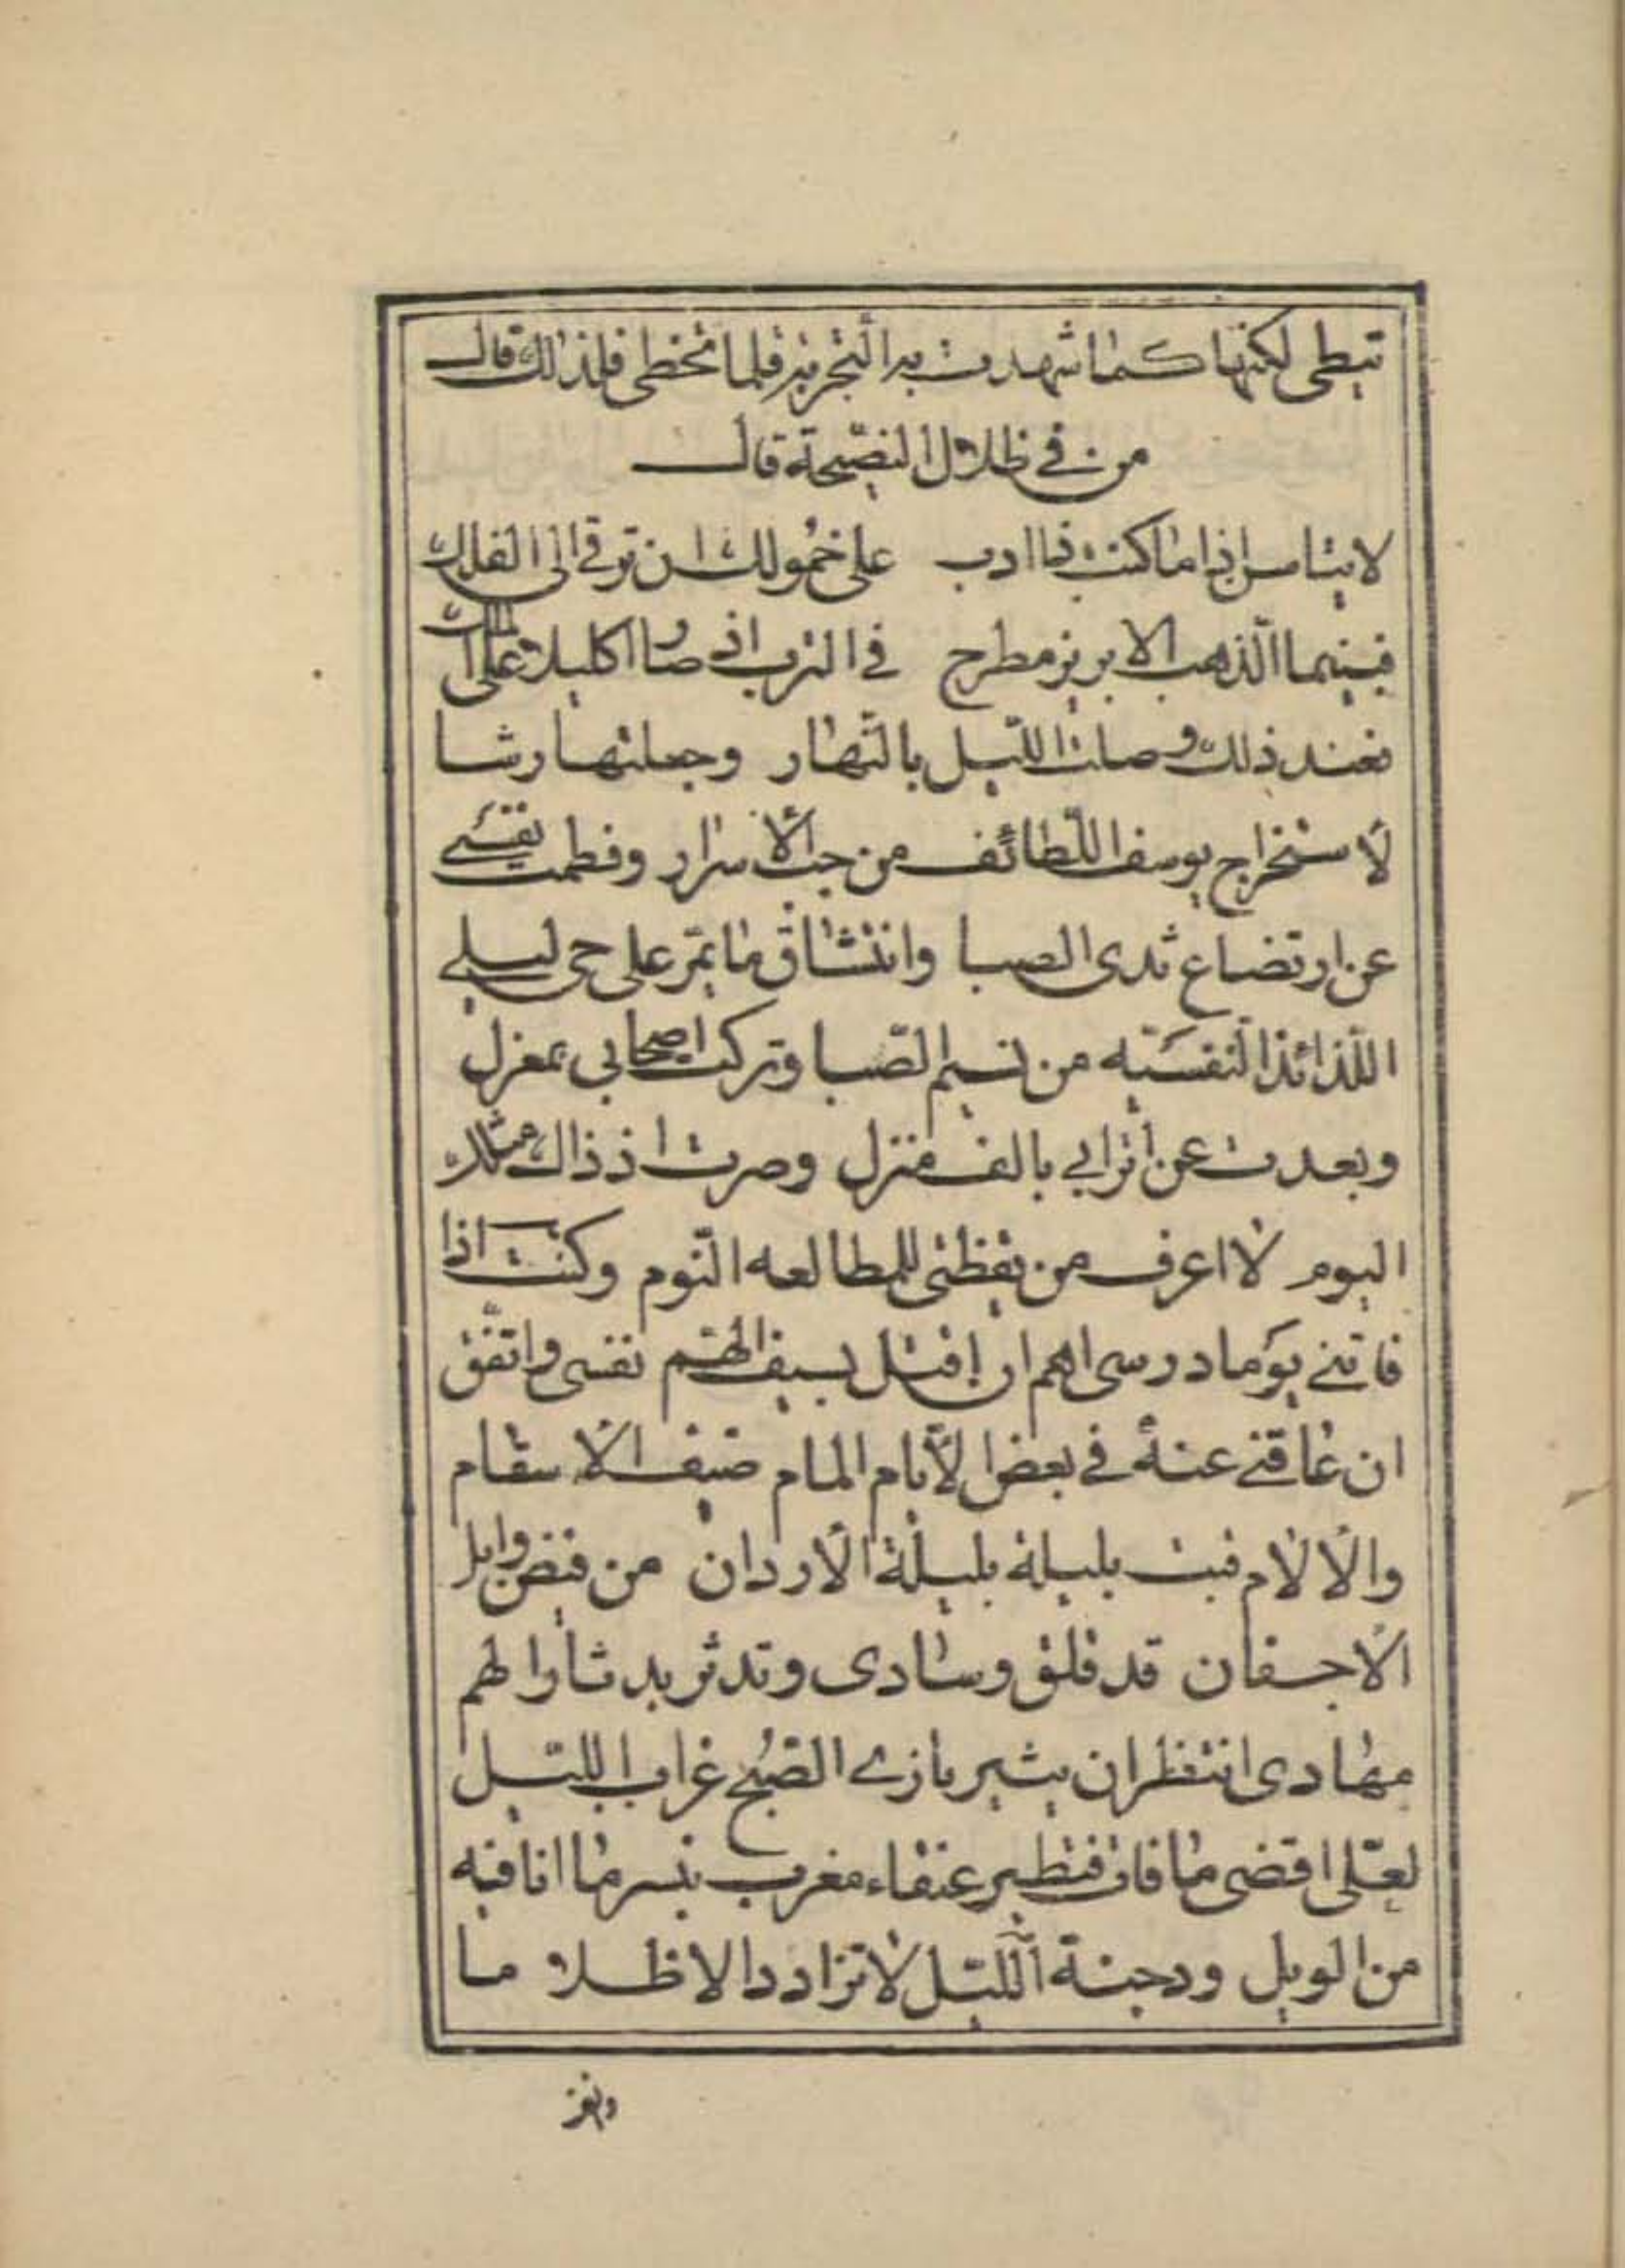 تبطى لكنها كما شهدت به التجربة فلما تخطى فلذلك قال
من في ظلال النصيحة قال
لا تيأسن اذا ما كنت ذا ادب على خمولك ان ترقى الى الفلك
فبينما الذهب الابريز مطرح في الترب اذ صار اكليلا على الملك
فعند ذلك وصلت الليل بالنهار وجعلتها رشا
لاستخراج يوسف اللطائف من جب الأسرار وفطمت نفسي
عن ارتضاع ثدى الصبا وانتشاق ما يمر على حى ليلى
اللذائذ النفسيّه من نسيم الصبا وتركت اصحابي بمعزل
وبعدت عن أترابي بالف منزل وصرت اذ ذاك مثلك
اليوم لا اعرف من يقظتى للمطالعه النوم وكنت اذا
فاتني يوما درسى اهم ان اقتل بسيف الهمّ نفسى واتّفق
ان عاقني عنه في بعض الأيام المام ضيف الأسقام
والآلام فبت بليلة بليلة الأردان من فيض وابل
الأجفان قد قلق وسادى وتدثر بدثار الهم
مهادى انتظر ان يثير بازي الصبح غراب الليل
لعلّى اقضى ما فات فتطير عنقاء مغرب بنسر ما انا فيه
من الويل ودجنة الليل لا تزداد الا ظلاما